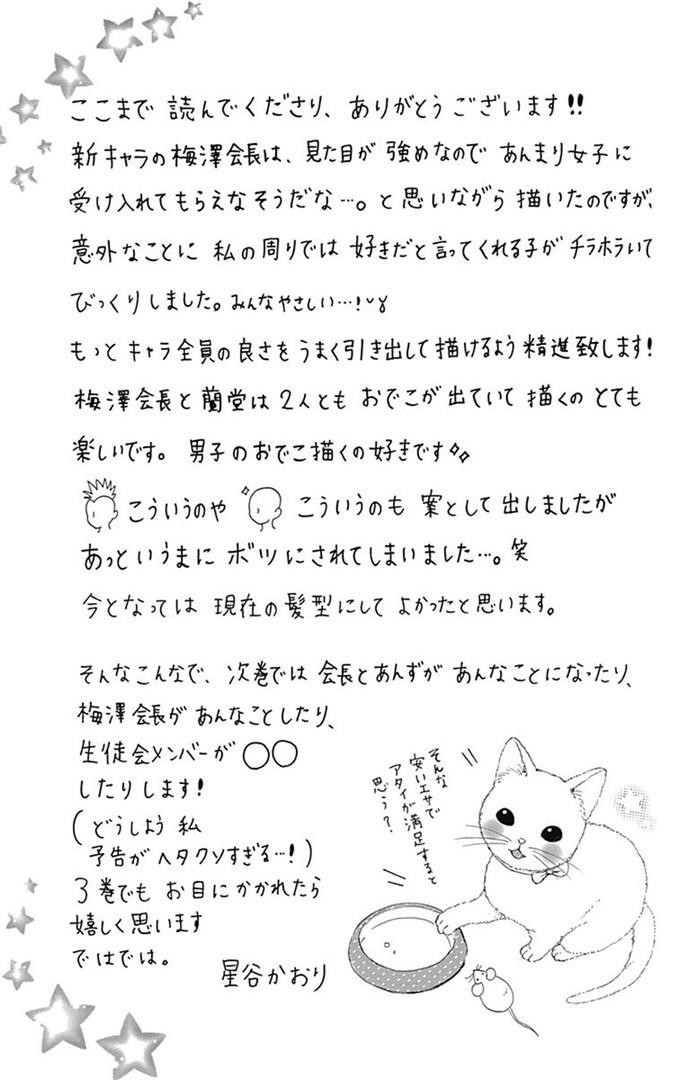 ここまで 読んでくださり、ありがとう ございます!!
新キャラの梅澤会長は、見た目が 強めなので あんまり女子に
受け入れてもらえなそうだな…。と思いながら 描いたのですが、
意外なことに 私の周りでは 好きだと言ってくれる子が チラホラいて
びっくりしました。みんなやさしい…!
もっと キャラ全員の良さを うまく引き出して 描けるよう 精進致します!
梅澤会長と 蘭堂は 2人とも おでこが 出ていて 描くの とても
楽しいです。 男子のおでこ描くの好きです
こういうのや こういうのも 案として 出しましたが
あっというまに ボツにされてしまいました…。笑
今となっては 現在の髪型にして よかったと思います。
そんなこんなで、次巻では 会長とあんずが あんなことになったり、
梅澤会長が あんなことしたり、
生徒会メンバーが ○○
したりします!
(どうしよう 私
予告がヘタクソすぎる…!)
3巻でも お目にかかれたら
嬉しく思います
ではでは。
星谷かおり
そんな
安いエサで
アタイが満足すると
思う?